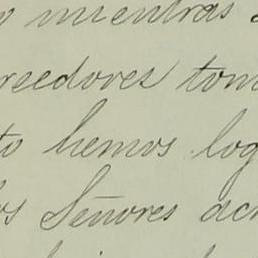 mientras
reedores tom
to hemos log
os Señores acr